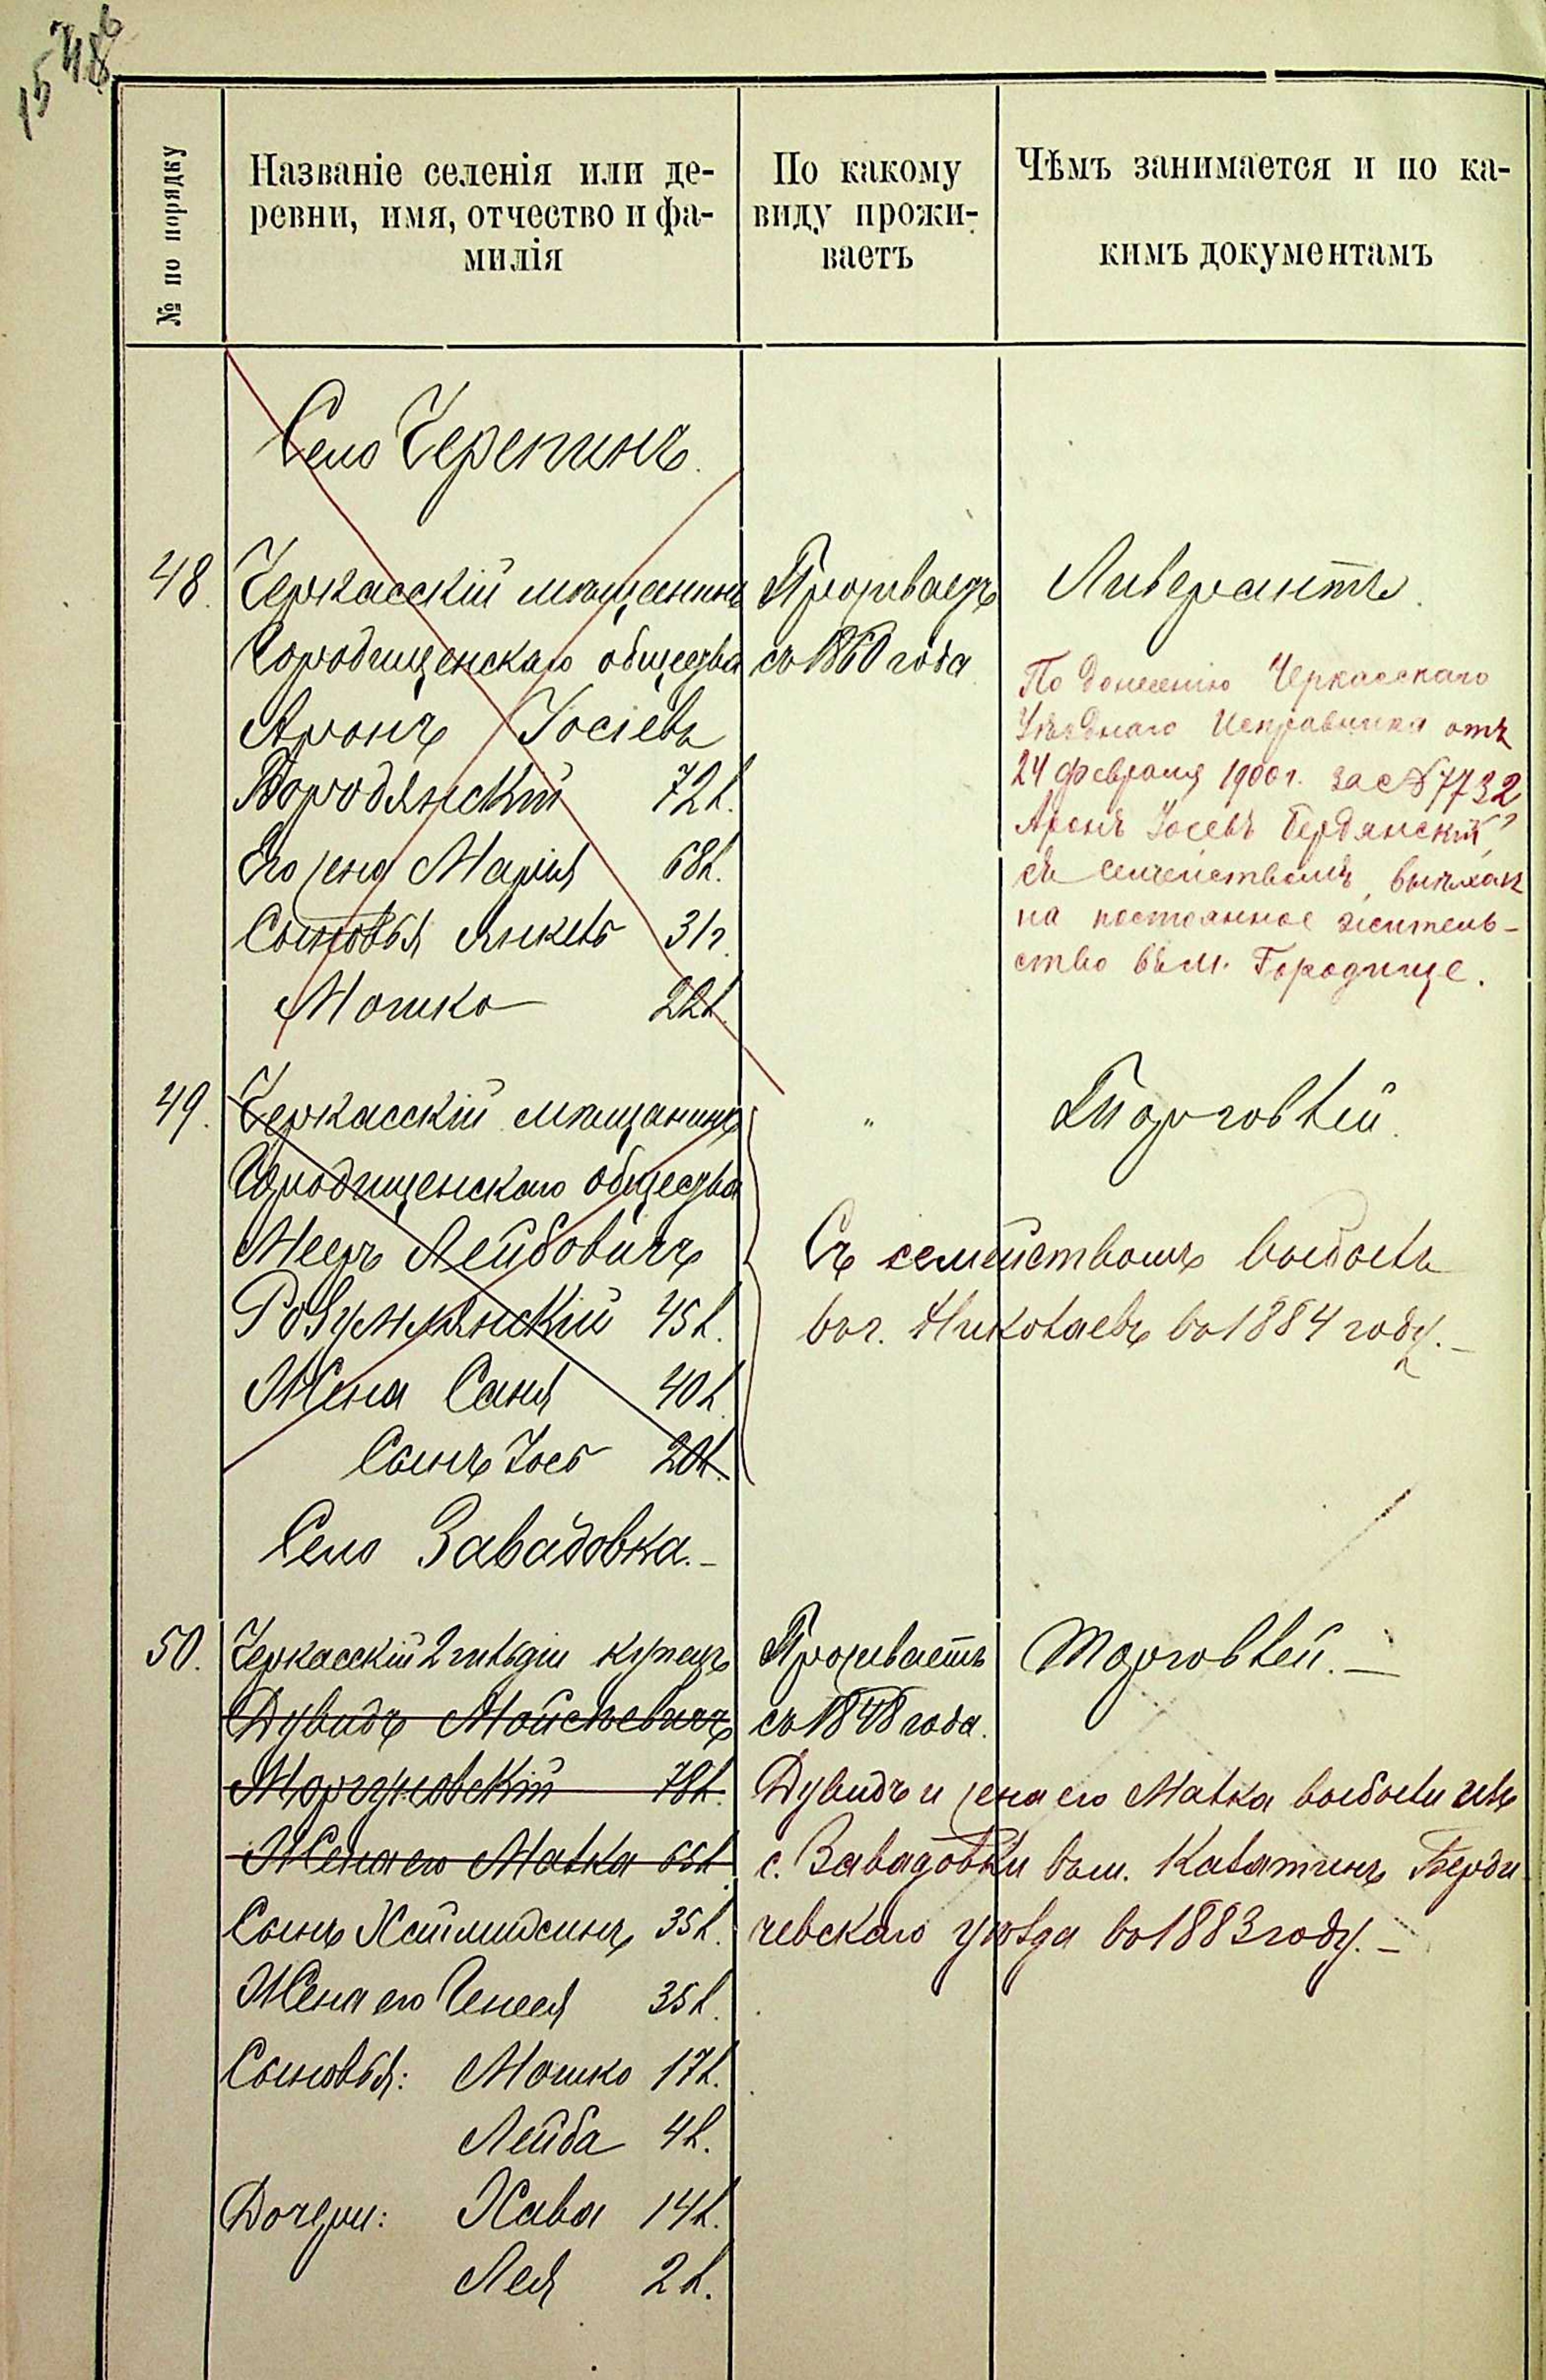 № по порядку
Названіе селенія или де-
ревни, имя, отчество и фа-
милія
По какому
виду прожи-
ваетъ
Чѣмъ занимается и по ка-
кимъ документамъ
Село Черепинъ.
48.
Черкасскій мѣщанинъ
Городищенскаго общества
Аронъ Іосіевъ
Бородянскій 72 л.
Его жена Марія 68 л.
Сыновья Янкель 31 г.
Мошко 22 л.
Проживаетъ
съ 1860 года
Ливерантъ.
По донесенію Черкасскаго
Уѣзднаго Исправника отъ
24 февраля 1900 г. за № 7732
Аронъ Іосевъ Бердянскій
съ семействомъ выѣхалъ
на постоянное житель-
ство въ м. Городище.
49.
Черкасскій мѣщанинъ
Городищенскаго общества
Мееръ Лейбовичъ
Розумнянскій 45 л.
Жена Саня 40 л.
Сынъ Іось 20 л.
"
Торговлей.
Съ семействомъ выбылъ
въ г. Николаевъ въ 1884 году.-
Село Завадовка.-
50.
Черкасскій 2 гильдіи купецъ
Дувидъ Мойсѣевичъ
Моргуновскій 78 л.
Жена его Малка 65 л.
Сынъ Хаимъ 35 л.
Жена его Генеся 35 л.
Сыновья: Мошко 17 л.
Лейба 4 л.
Дочери: Хава 14 л.
Лея 2 л.
Проживаетъ
съ 1848 года.
Торговлей.-
Дувидъ и жена его Малка выбыли изъ
с. Завадовки въ м. Калатинъ Берди
чевскаго уѣзда въ 1883 году.-